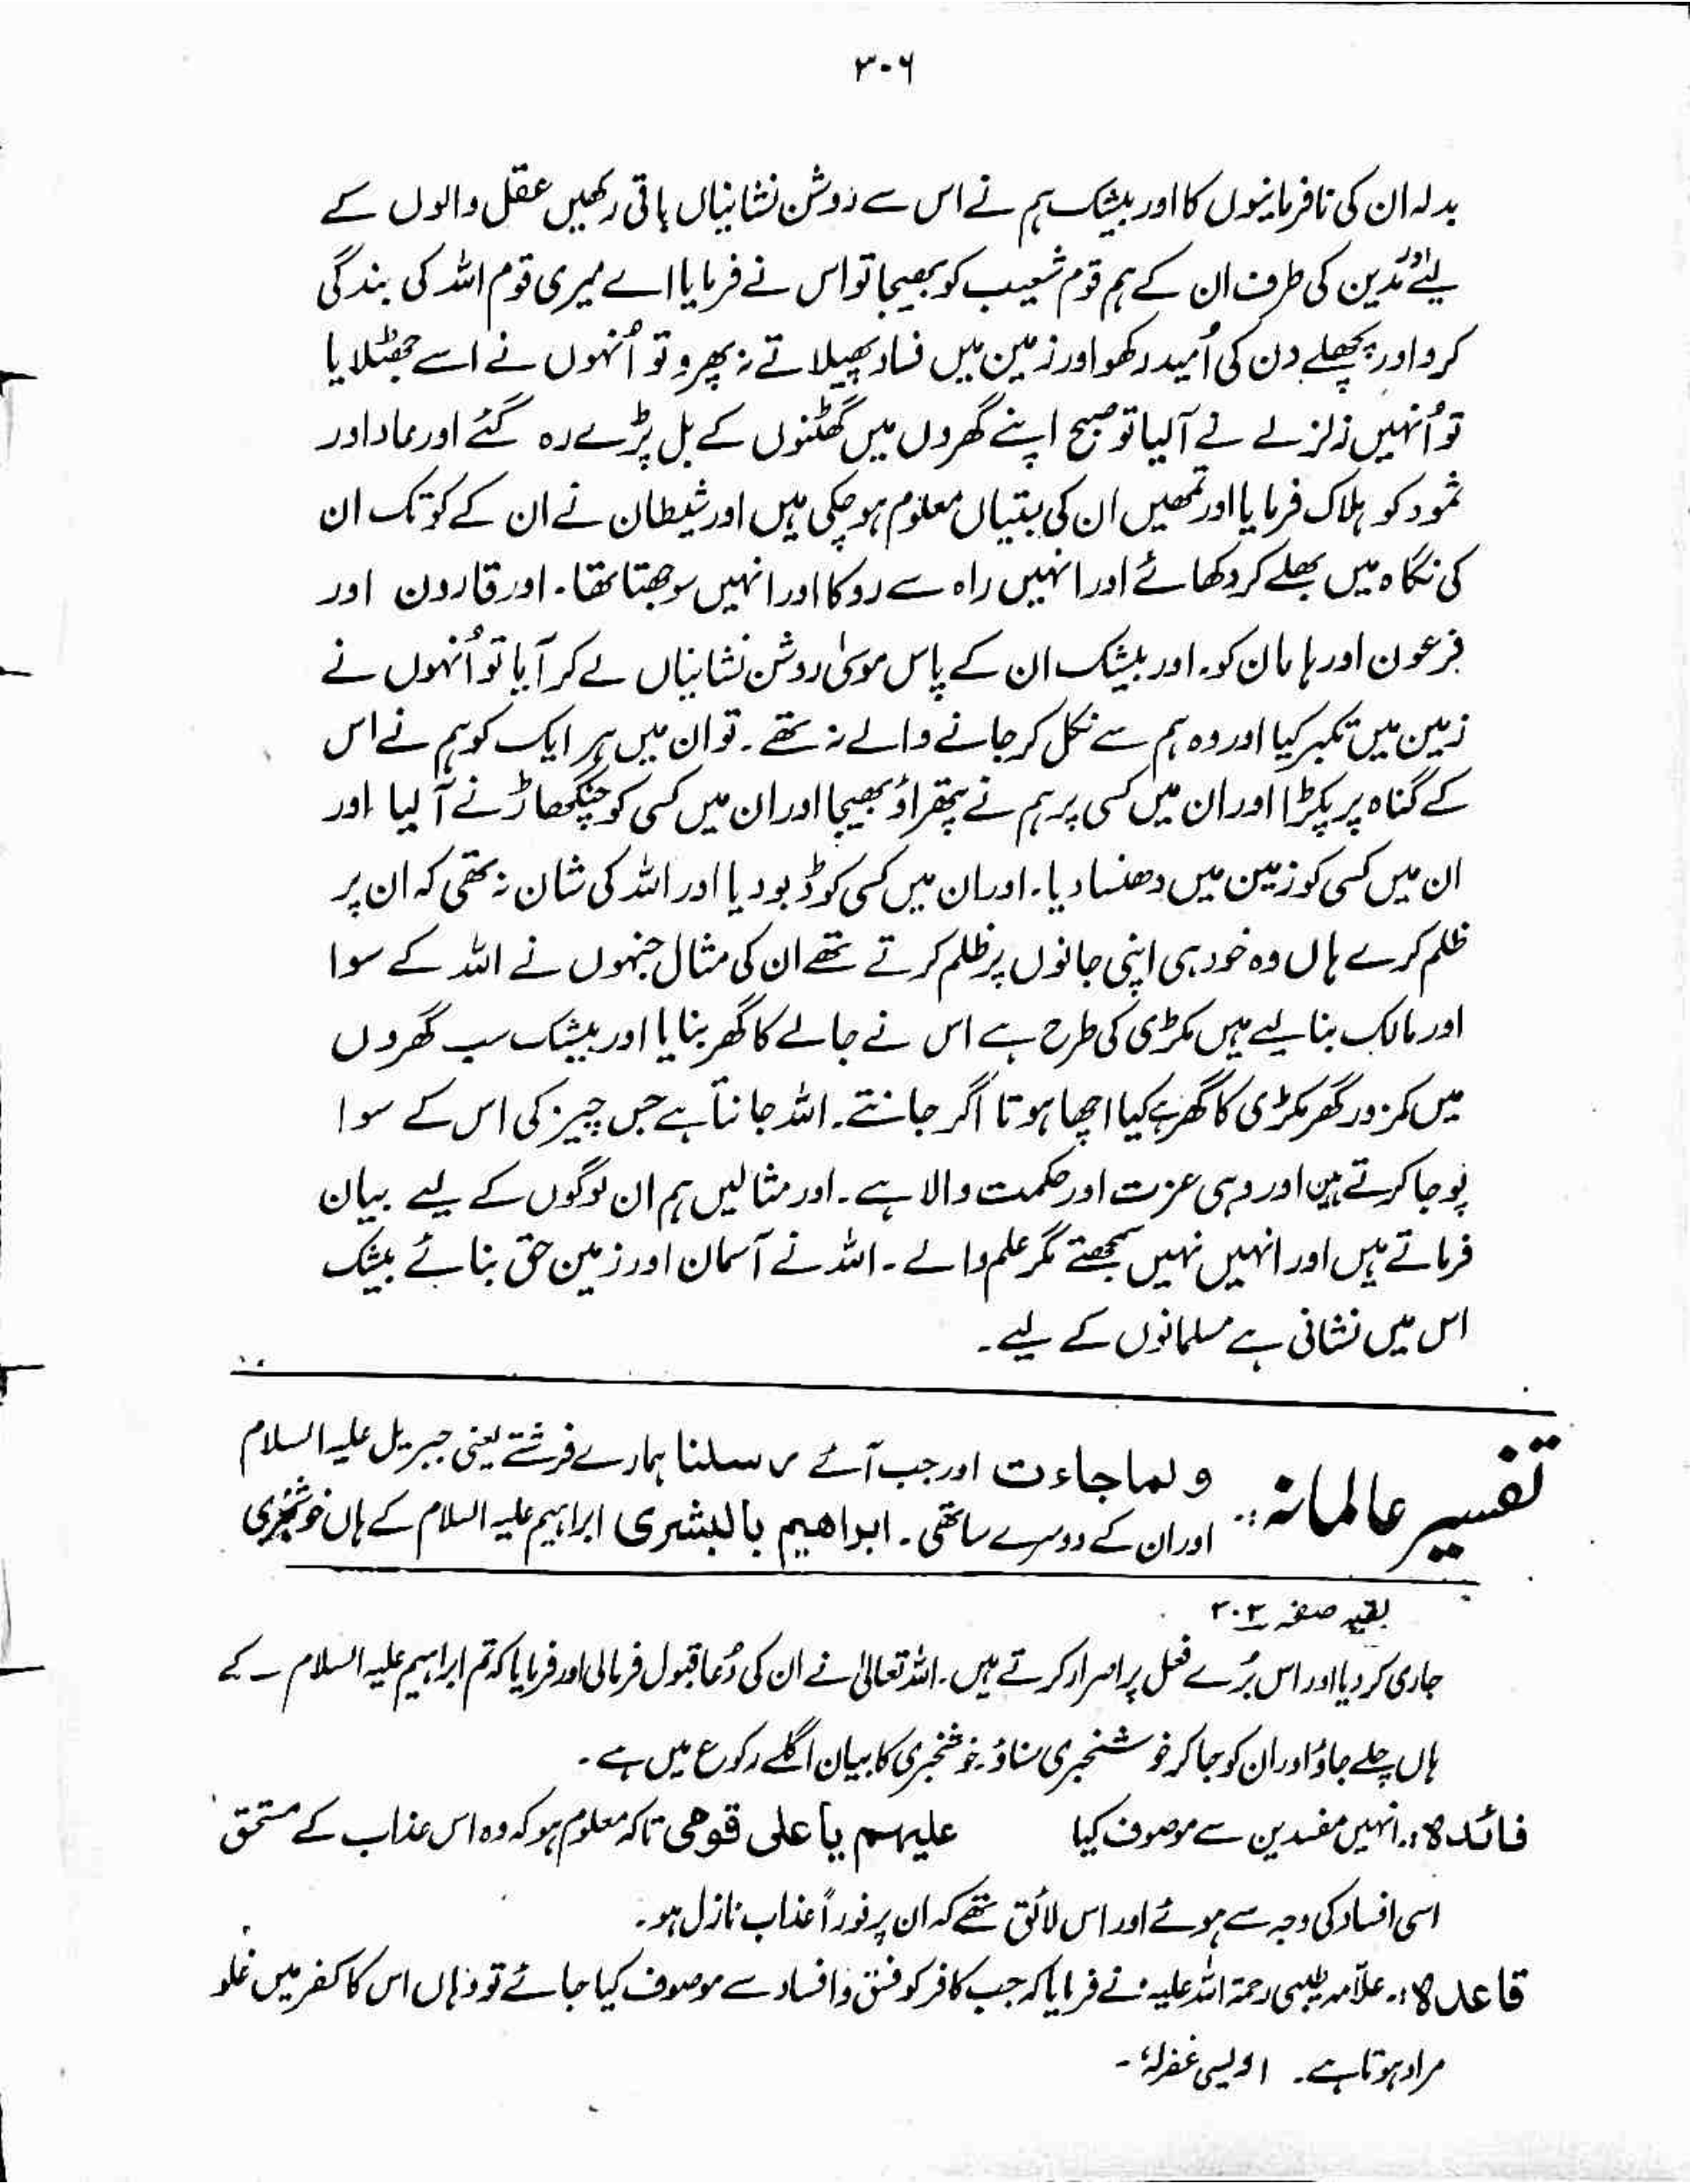 ۳۰۶
بدلہ ان کی نافرمانیوں کا اور بیشک ہم نے اس سے روشن نشانیاں باقی رکھیں عقل والوں کے
لیئے اور مَدین کی طرف ان کے ہم قوم شعیب کو بھیجا تو اس نے فرمایا اے میری قوم اللہ کی بندگی
کرو اور پچھلے دن کی اُمید رکھو اور زمین میں فساد پھیلاتے نہ پھرو تو اُنہوں نے اسے جھٹلایا
تو اُنہیں زلزلے نے آلیا تو صبح اپنے گھروں میں گھٹنوں کے بل پڑے رہ گئے اور عاد اور
ثمود کو ہلاک فرمایا اور تمھیں ان کی بستیاں معلوم ہو چکی ہیں اور شیطان نے ان کے کوتک ان
کی نگاہ میں بھلے کر دکھائے اور انہیں راہ سے روکا اور انہیں سوجھتا تھا۔ اور قارون اور
فرعون اور ہامان کو۔ اور بیشک ان کے پاس موسیٰ روشن نشانیاں لے کر آیا تو اُنہوں نے
زمین میں تکبر کیا اور وہ ہم سے نکل کر جانے والے نہ تھے۔ تو ان میں ہر ایک کو ہم نے اس
کے گناہ پر پکڑا اور ان میں کسی پر ہم نے پتھراؤ بھیجا اور ان میں کسی کو چنگھاڑ نے آ لیا اور
ان میں کسی کو زمین میں دھنسا دیا۔ اور ان میں کسی کو ڈبو دیا اور اللہ کی شان نہ تھی کہ ان پر
ظلم کرے ہاں وہ خود ہی اپنی جانوں پر ظلم کرتے تھے ان کی مثال جنہوں نے اللہ کے سوا
اور مالک بنا لیے ہیں مکڑی کی طرح ہے اس نے جالے کا گھر بنایا اور بیشک سب گھروں
میں کمزور گھر مکڑی کا گھر ہے کیا اچھا ہوتا اگر جانتے۔ اللہ جانتا ہے جس چیز کی اس کے سوا
پوجا کرتے ہیں اور وہی عزت اور حکمت والا ہے۔ اور مثالیں ہم ان لوگوں کے لیے بیان
فرماتے ہیں اور انہیں نہیں سمجھتے مگر علم والے۔ اللہ نے آسمان اور زمین حق بنائے بیشک
اس میں نشانی ہے مسلمانوں کے لیے۔
تفسیر عالمانہ:۔ ولما جاءت اور جب آئے رسلنا ہمارے فرشتے یعنی جبریل علیہ السلام
اور ان کے دوسرے ساتھی۔ ابراھیم بالبشری ابراہیم علیہ السلام کے ہاں خوشخبری
بقیہ صفحہ ۳۰۳
جاری کر دیا اور اس بُرے فعل پر اصرار کرتے ہیں۔ اللہ تعالیٰ نے ان کی دُعا قبول فرمالی اور فرمایا کہ تم ابراہیم علیہ السلام کے
ہاں چلے جاؤ اور ان کو جا کر خوشخبری سناؤ۔ خوشخبری کا بیان اگلے رکوع میں ہے۔
فائدہ:۔ انہیں مفسدین سے موصوف کیا علیہم یا علی قومی تاکہ معلوم ہو کہ وہ اس عذاب کے مستحق
اسی افساد کی وجہ سے ہوئے اور اس لائق تھے کہ ان پر فوراً عذاب نازل ہو۔
قاعدہ:۔ علامہ طیبی رحمۃ اللہ علیہ نے فرمایا کہ جب کافر کو فسق و افساد سے موصوف کیا جائے تو وہاں اس کا کفر میں غلو
مراد ہوتا ہے۔ اویسی غفرلہٗ۔